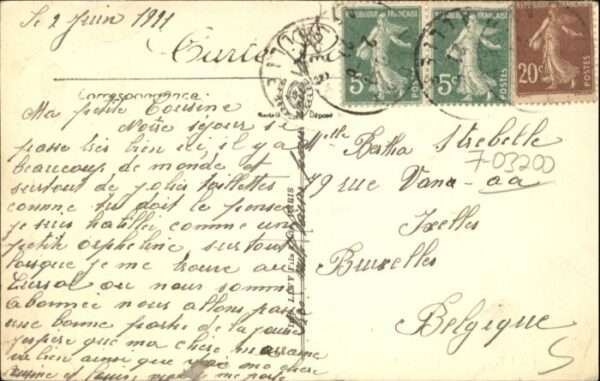 Le 2 Juin 1921
Carte
Correspondance
Ma petite Cousine
Notre séjour se
passe très bien ici, il y a
beaucoup de monde et
surtout de jolies toilettes
comme tu dois le penser
je suis habillée comme une
petite orpheline surtout
lorsque je me trouve au
Cursal où nous sommes
abonnée nous allons passer
une bonne partie de la journée
j'espère que ma chère marraine
va bien ainsi que ma chère
REPUBLIQUE FRANÇAISE
5c
POSTES
REPUBLIQUE FRANÇAISE
5c
POSTES
REPUBLIQUE FRANÇAISE
20c
POSTES
Modèle Déposé
Mlle Bertha Strebelle
703200
79 rue Vana-aa
Ixelles
Bruxelles
Belgique